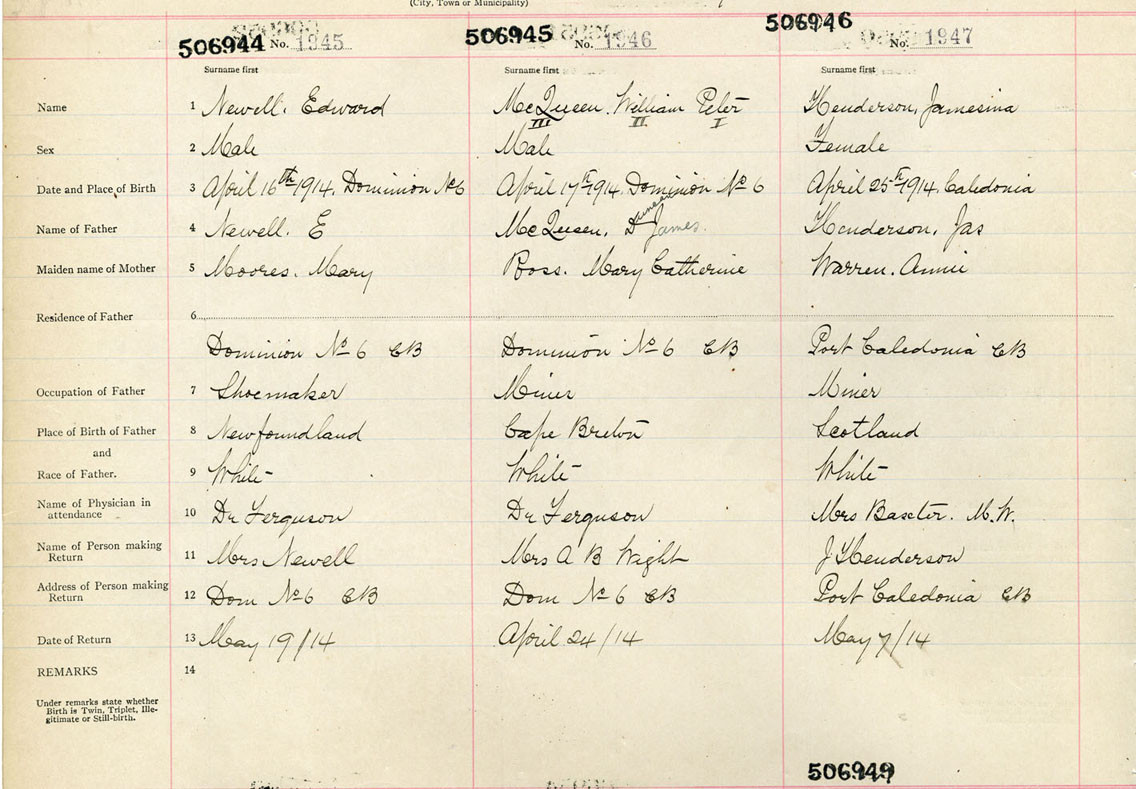 (City, Town or Municipality)
506944 No. 1945 506945 No. 1946 506946 No. 1947
Surname first Surname first Surname first
Name 1 Newell, Edward McQueen, William Peter Henderson, Jamesina
III II I
Sex 2 Male Male Female
Date and Place of Birth 3 April 16th 1914, Dominion No 6 April 17th 1914, Dominion No 6 April 25th 1914, Caledonia
Name of Father 4 Newell, E McQueen, Duncan James Henderson, Jas
Maiden name of Mother 5 Moores, Mary Ross, Mary Catherine Warren, Annie
Residence of Father 6
Dominion No 6 CB Dominion No 6 CB Port Caledonia CB
Occupation of Father 7 Shoemaker Miner Miner
Place of Birth of Father 8 Newfoundland Cape Breton Scotland
and
Race of Father. 9 White White White
Name of Physician in
attendance 10 Dr Ferguson Dr Ferguson Mrs Baxter. M.W.
Name of Person making
Return 11 Mrs Newell Mrs A B Wight J Henderson
Address of Person making
Return 12 Dom No 6 CB Dom No 6 CB Port Caledonia CB
Date of Return 13 May 19/14 April 24/14 May 7/14
REMARKS 14
Under remarks state whether
Birth is Twin, Triplet, Ille-
gitimate or Still-birth.
506949